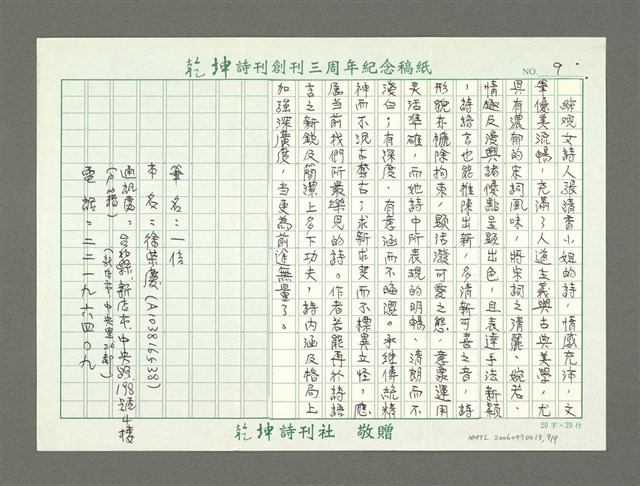 乾坤詩刊創刊三周年紀念稿紙
NO. 9
綜观女詩人張清香小姐的詩，情感充沛，文
筆優美流暢，充滿了人道主義與古典美學，尤
具有濃郁的宋詞風味，將宋詞之清麗、婉若、
情趣及漫興諸優點呈顯出色，且表達手法新穎
，詩語言也能推陳出新，多清新可喜之音，詩
形貌亦褫除拘束，顯活潑可愛之態，意象運用
灵活準確，而她詩中所表現的明暢、清朗而不
淺白；有深度、有意涵而不晦澀。承继傳統精
神而不泥古蹈古；求新求变而不標異立怪，應
屬当前我們所最樂見的詩。作者若能再於詩語
言之新銳及簡潔上多下功夫，詩內涵及格局上
加強深廣度，当更為前途無量了。
筆名：一信
本名：徐榮慶（A103816638）
通訊處：台北縣新店市中央路198號4樓
電話：二二一九六四〇九
乾坤詩刊社 敬贈
20字×20行
NMTL 20060970013, 9/9